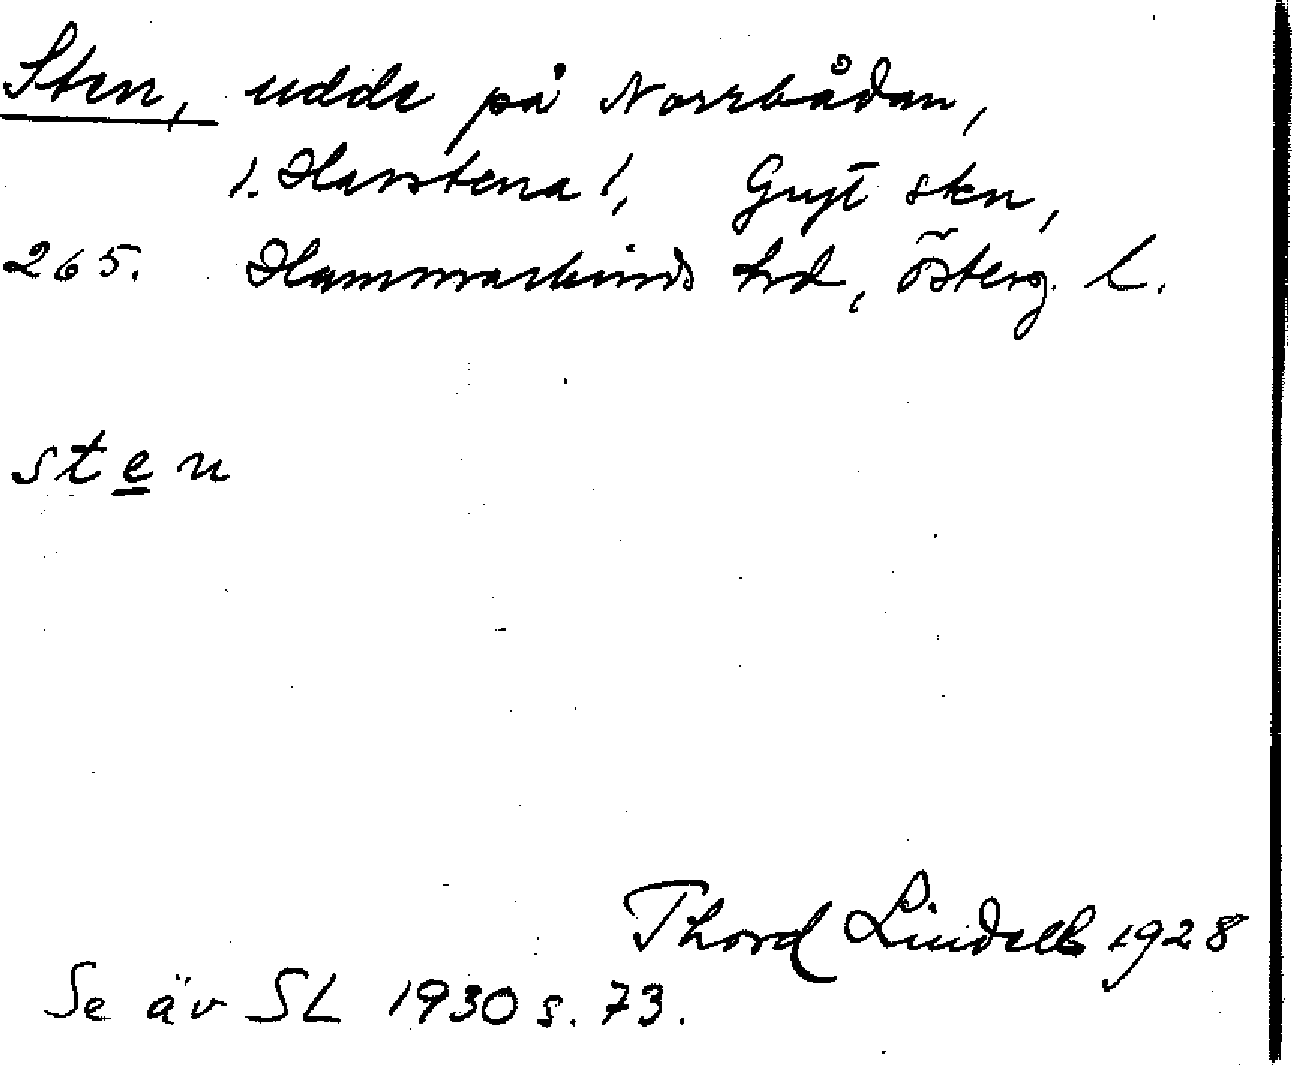 Sten, udde på Norrbådan,
1. Harstena 1, Gryt skn,
265. Hammarkinds hrd, Österg. l.
sten
Thord Lindell 1928
Se äv SL 1930 s. 73.